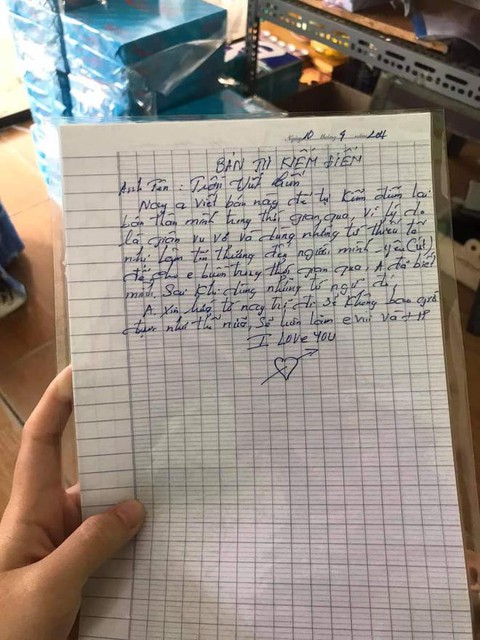 Ngày 10 tháng 9 năm 204
BẢN TỰ KIỂM ĐIỂM
Anh Tên :
Nay a viết bản này để tự kiểm điểm lại
bản thân mình trong thời gian qua, vì lý do
là giận vu vơ và dùng những từ thiếu tế
nhị làm tổn thương đến người mình yêu
để cho e buồn trong thời gian qua. A đã biết
mình sai khi dùng những từ ngữ đó
A xin hứa từ nay trở đi sẽ không bao giờ
được như thế nữa, sẽ luôn làm e vui và
I LOVE YOU